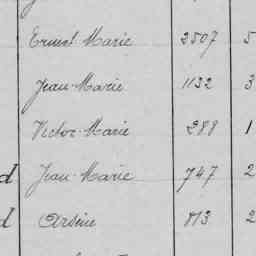 Ernest Marie 2507 5
Jean-Marie 1132 3
Victor-Marie 288 1
d Jean-Marie 747 2
d Arsène 813 2